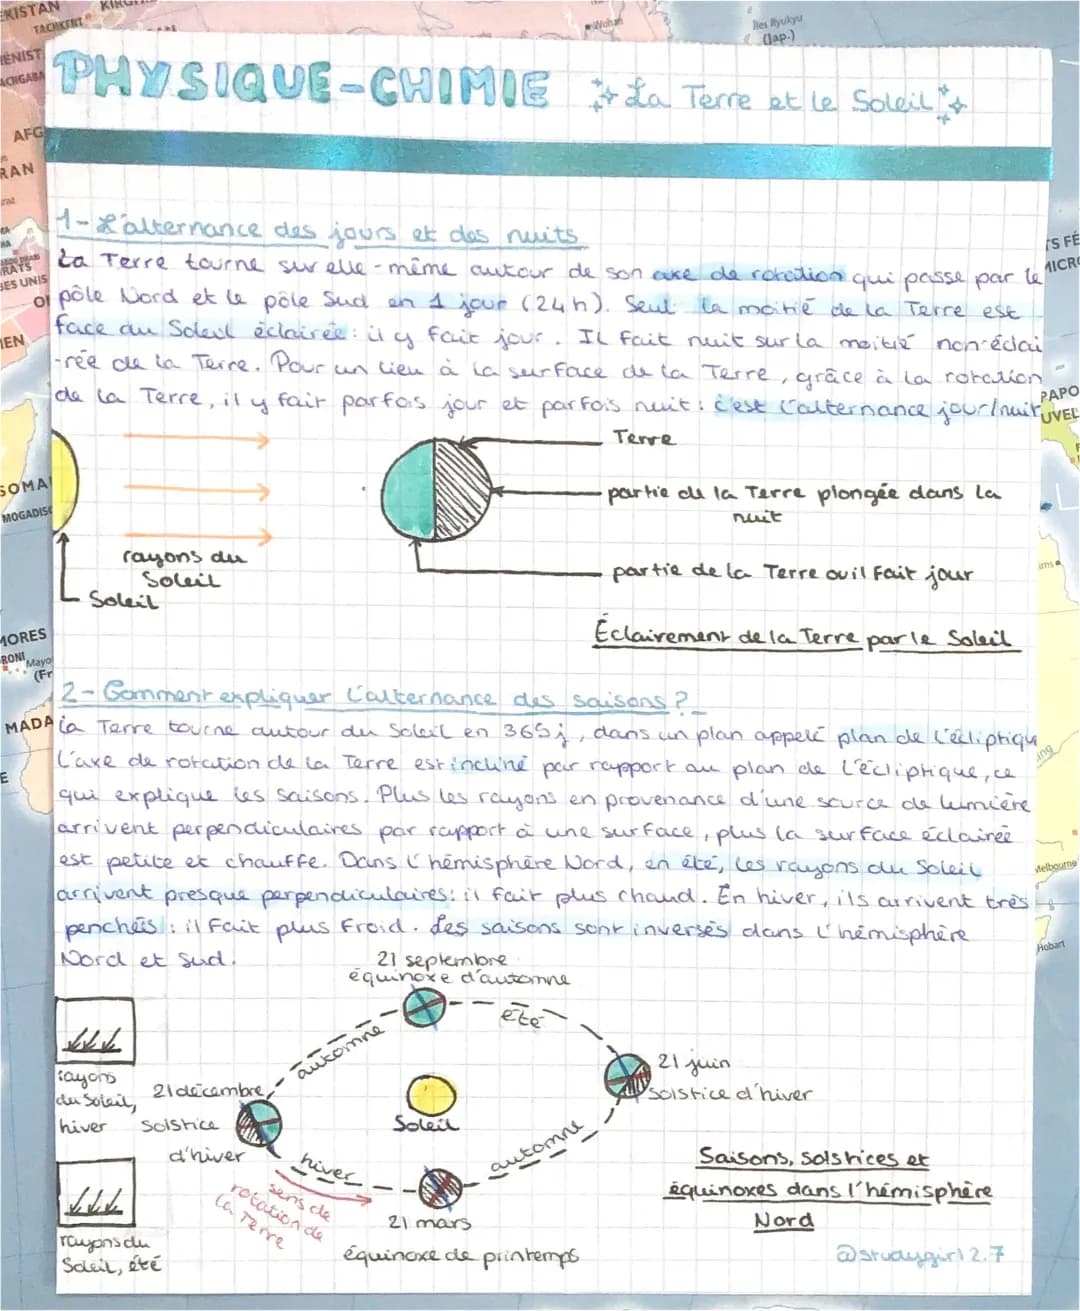 TACHKENT
Wuhan
Îles Ryukyu
(Jap.)
PHYSIQUE-CHIMIE La Terre et le Soleil
AFG
RAN
1- L'alternance des jours et des nuits
La Terre tourne sur elle-même autour de son axe de rotation qui passe par le
pôle Nord et le pôle Sud en 1 jour (24h). Seul la moitié de la Terre est
face au Soleil éclairée : il y fait jour. Il fait nuit sur la moitié non-éclai
-rée de la Terre. Pour un lieu à la surface de la Terre, grâce à la rotation
de la Terre, il y fait parfois jour et parfois nuit : c'est l'alternance jour/nuit
Terre
partie de la Terre plongée dans la
nuit
rayons du
Soleil
partie de la Terre ou il fait jour
Soleil
Éclairement de la Terre par le Soleil
SOMA
MOGADISC
MORES
RONI
Mayo
(Fr
MADA
2- Comment expliquer l'alternance des saisons ?
la Terre tourne autour du Soleil en 365j, dans un plan appelé plan de l'écliptique
L'axe de rotation de la Terre est incliné par rapport au plan de l'écliptique, ce
qui explique les saisons. Plus les rayons en provenance d'une source de lumière
arrivent perpendiculaires par rapport à une surface, plus la surface éclairée
est petite et chauffe. Dans l'hémisphère Nord, en été, les rayons du Soleil
arrivent presque perpendiculaires : il fait plus chaud. En hiver, ils arrivent très
penchés : il fait plus froid. Les saisons sont inversés dans l'hémisphère
Nord et Sud.
Melbourne
Hobart
21 septembre
équinoxe d'automne
été
automne
21 juin
solstice d'hiver
rayons
du Soleil,
hiver
21 décembre,
solstice
d'hiver
Soleil
automne
hiver
sens de
rotation de
la Terre
21 mars
équinoxe de printemps
rayons du
Soleil, été
Saisons, solstices et
équinoxes dans l'hémisphère
Nord
@studygirl2.7